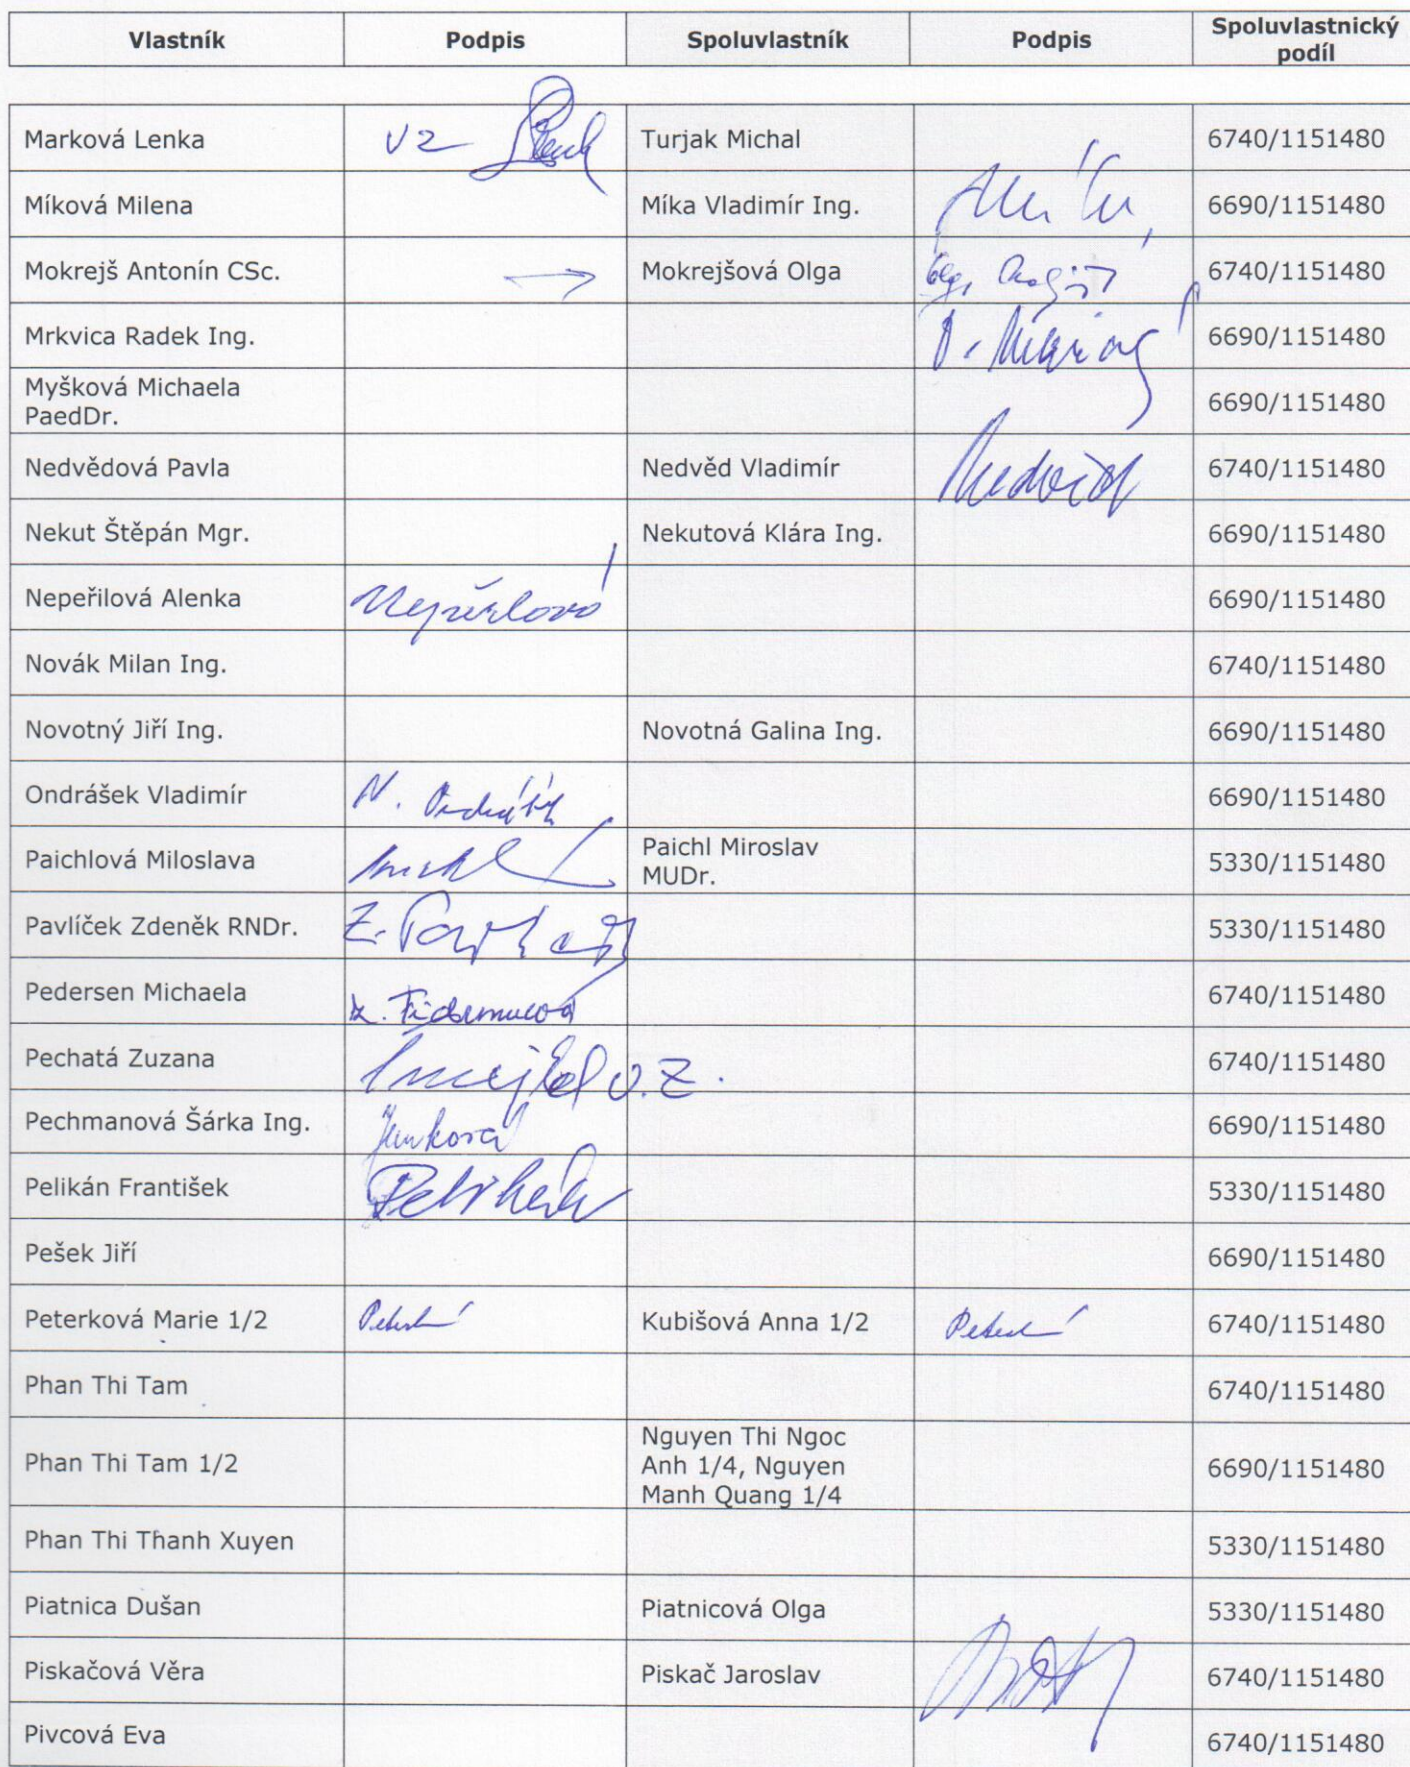 Vlastník Podpis Spoluvlastník Podpis Spoluvlastnický
podíl
Marková Lenka vz Turjak Michal 6740/1151480
Míková Milena Míka Vladimír Ing. 6690/1151480
Mokrejš Antonín CSc. Mokrejšová Olga 6740/1151480
Mrkvica Radek Ing. 6690/1151480
Myšková Michaela
PaedDr. 6690/1151480
Nedvědová Pavla Nedvěd Vladimír Nedvěd 6740/1151480
Nekut Štěpán Mgr. Nekutová Klára Ing. 6690/1151480
Nepeřilová Alenka Nepeřilová 6690/1151480
Novák Milan Ing. 6740/1151480
Novotný Jiří Ing. Novotná Galina Ing. 6690/1151480
Ondrášek Vladimír 6690/1151480
Paichlová Miloslava Paichl Miroslav
MUDr. 5330/1151480
Pavlíček Zdeněk RNDr. Z. Pavlíček 5330/1151480
Pedersen Michaela 6740/1151480
Pechatá Zuzana v.z. 6740/1151480
Pechmanová Šárka Ing. Junková 6690/1151480
Pelikán František Pelikán 5330/1151480
Pešek Jiří 6690/1151480
Peterková Marie 1/2 Kubišová Anna 1/2 6740/1151480
Phan Thi Tam 6740/1151480
Phan Thi Tam 1/2 Nguyen Thi Ngoc
Anh 1/4, Nguyen
Manh Quang 1/4 6690/1151480
Phan Thi Thanh Xuyen 5330/1151480
Piatnica Dušan Piatnicová Olga 5330/1151480
Piskačová Věra Piskač Jaroslav 6740/1151480
Pivcová Eva 6740/1151480